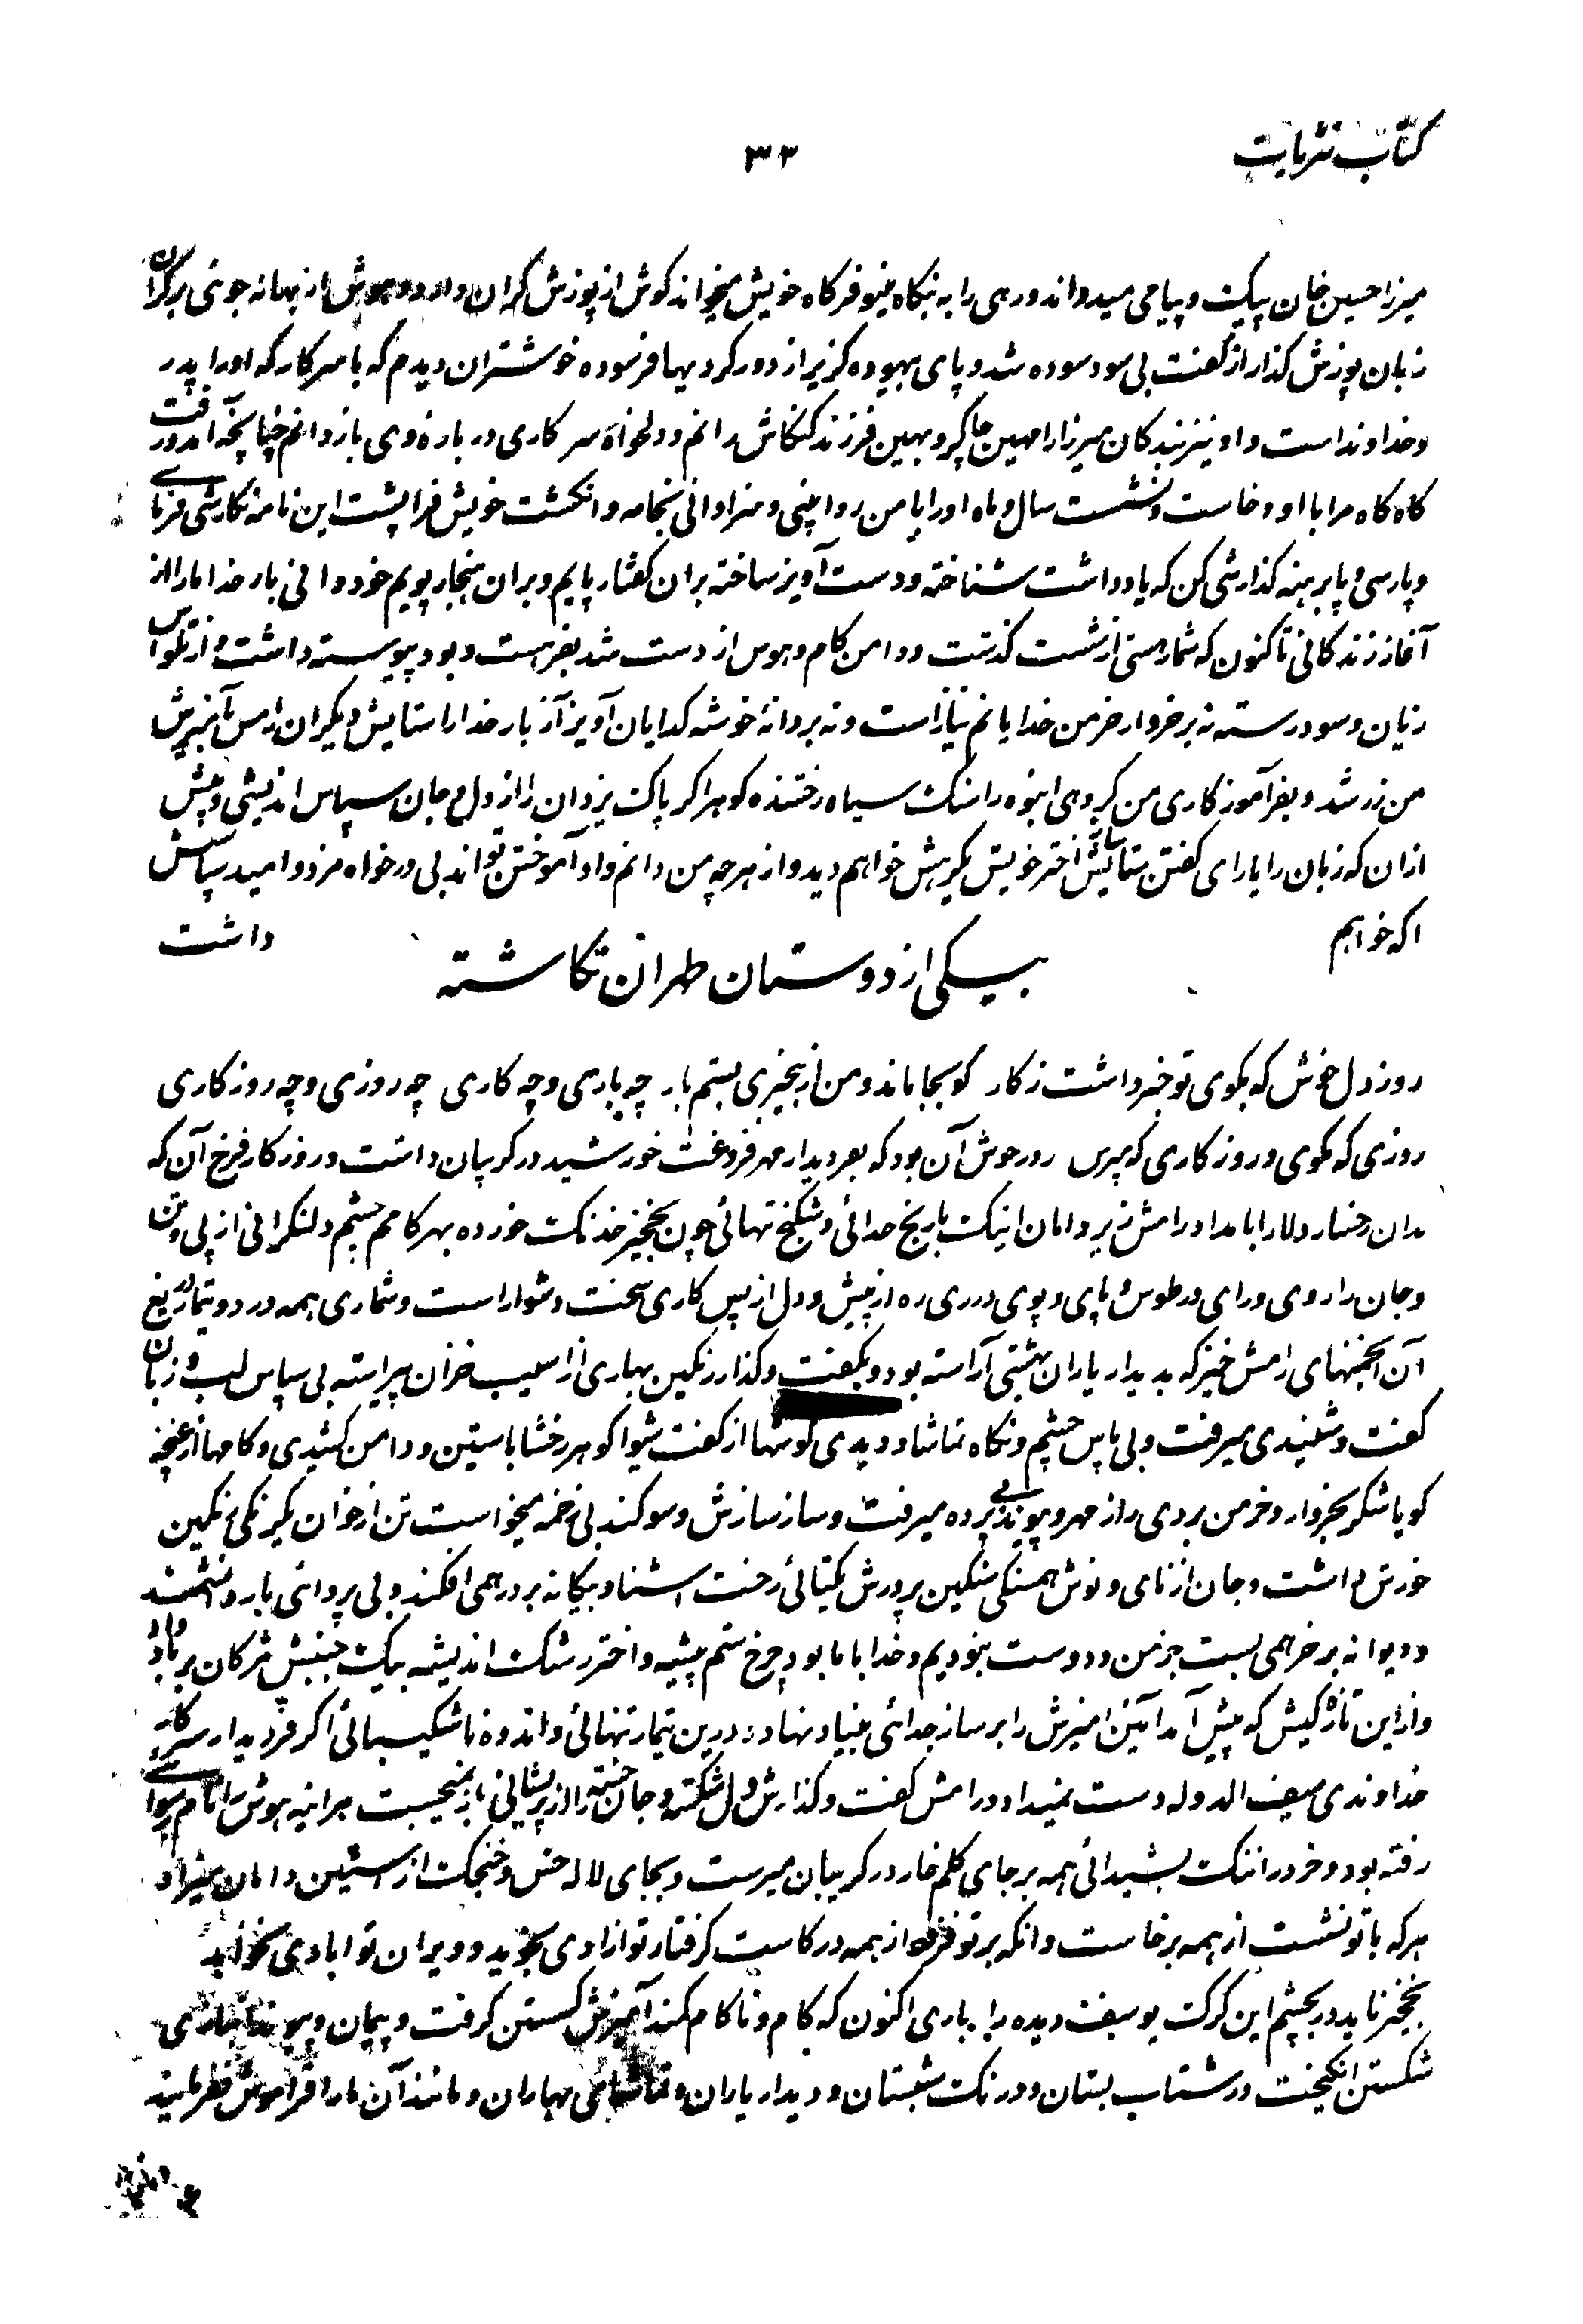 کتاب نثریات
۳۲
میرزا حسین خان پیک و پیامی میدواند و رهی را به بنگاه مینو فرگاه خویش میخواند گوش از پوزش گران دارد و هوش از بهانه جوئی بر کران
زبان پوزش گذار از گفت بی سود سوده شد و پای بیهوده گریز از دور گردیها فرسوده خوشتر آن دیدم که با سرکار که او را پدر
و خداوند است و او نیز بندگان میرزا را مهین چاکر و بهین فرزند کنکاش رانم و دلخواه سرکاری درباره وی باز دانم چنانچه آمد و رفت
گاه گاه مرا با او و خاست و نشست سال و ماه او را با من روا بینی و سزا دانی بخامه و انگشت خویش فرا پشت این نامه نگارشی فرمای
و پارسی و پا برهنه گذارشی کن که یادداشت شناخته و دست آویز ساخته بر آن گفتار پایم و بر آن هنجار پویم خود دانی بار خدا ما را از
آغاز زندگانی تا کنون که شمار هستی از شست گذشت و دامن کام و هوس از دست شد بفر هست و بود پیوسته داشت و از تلواس
زیان و سود رسته نه بر خروار خرمن خدایانم نیاز است و نه بر دانه خوشه گدایان آویز آز بار خدا را ستایش دیگران را مس بآمیزش
من زر شد و بفر آموزگاری من گروهی انبوه را سنگ سیاه رخشنده گوهر اگر پاک یزدان را از دل و جان سپاس اندیشی و پیش
از آن که زبان را یارای گفتن ستایش اختر خویش نگرهش خواهم دید و از هرچه من دانم و او آموختن تواند بی درخواه مزد و امید سپاسش
آگه خواهم داشت
بیکی از دوستان طهران نگاشته
روز دل خوش که بکوی تو خبر داشت ز کار کو بجا ماند و من از بیخبری بستم بار چه یاری و چه کاری چه روزی و چه روزگاری
روزی که مگوی و روزگاری که مپرس روز خوش آن بود که بفر دیدار مهر فروغت خورشید در گریبان داشت و روزگار فرخ آن که
بدان رخسار دلارا بامداد رامش زیر دامان اینک با رنج جدائی و شکنج تنهائی چون نخجیر خدنگ خورده بهر گامم چشم دلنگرانی از پی و تن
و جان را روی و رای در طوس و پای و پوی در ری ره از پیش و دل از پس کاری سخت دشوار است و شماری همه درد و تیمار دریغ
آن انجمنهای رامش خیز که بدیدار یاران بهشتی آراسته بود و بگفت و گذار رنگین بهاری از آسیب خزان پیراسته بی سپاس لب و زبان
گفت و شنیدی میرفت و بی پاس چشم و نگاه تماشا و دیدی گوشها از گفت شیوا گوهر رخشا بآستین و دامن کشیدی و کامها از غنچه
گویا شکر بخروار و خرمن بردی راز مهر و پیوند بی پرده میرفت و ساز سازش و سوگند بی زخمه میخواست تن از خوان یکرنگی نمکین
خورش داشت و جان از نای و نوش همسنگی شکین پرورش یکتائی رخت آشنا و بیگانه بر در همی افکند و بی پروائی بار دانشمند
و دیوانه بر خر همی بست جز من و دوست نبودیم و خدا با ما بود چرخ ستم پیشه و اختر رشک اندیشه بیک جنبش مژگان بر باد داد
و از این تازه کیش که پیش آمد آئین آمیزش را بر ساز جدائی بنیاد نهاد در این تیمار تنهائی و اندوه ناشکیبائی اگر فر دیدار سرکار
خداوندی سیف الدوله دست نمیداد و رامش گفت و گذارش دل شکسته و جان خسته را از پریشانی باز نمیجست هر آینه هوش را نام رسوائی
رفته بود و خرد را ننگ بشیدائی همه بر جای گلم خار در گریبان میرست و بجای لاله خس و خنجک از آستین و دامان میزاد
هر که با تو نشست از همه برخاست و انکه بر تو فزود از همه در کاست گرفتار تو آزادی نجوید و ویران تو آبادی نخواهد
نخجیر ناید در بچشم این گرگ یوسف دیده را باری اکنون که کام و ناکام کمند آمیزش گسستن گرفت و پیمان و پیوند تباری
شکستن انگیخت در شتاب بستان و درنگ شبستان و دیدار یاران و تماشای بهاران و مانند آن ما را فراموش مفرمائید